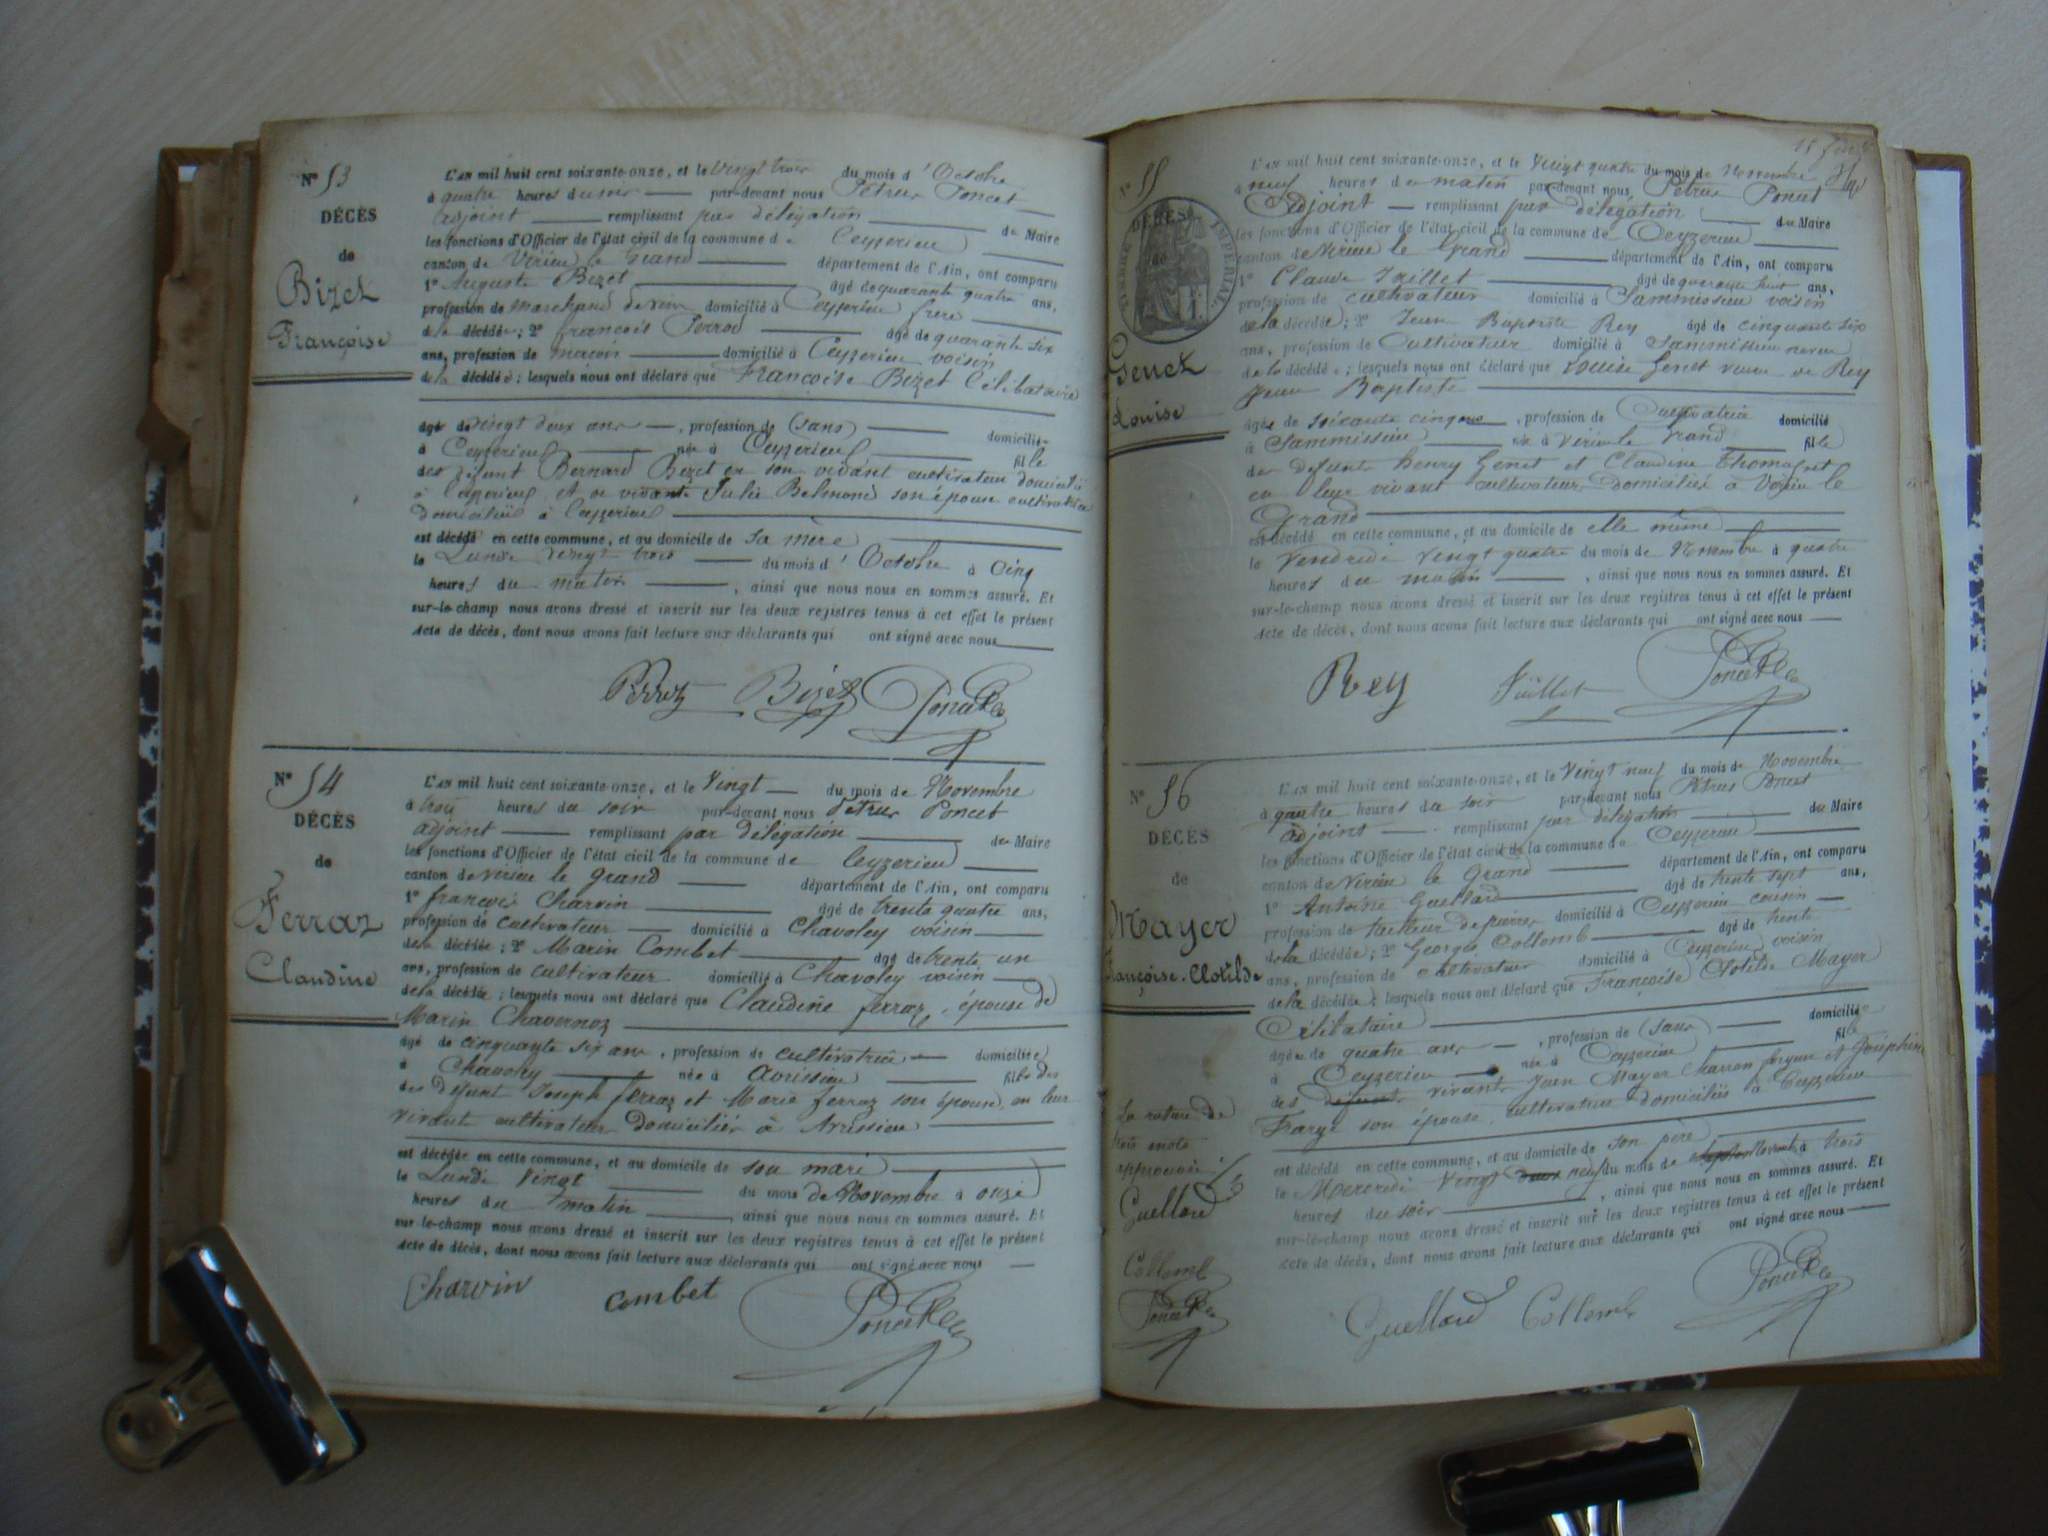 Nº 53
DÉCÈS
de
Bizet
Françoise
L'AN mil huit cent soixante-onze, et le vingt trois du mois d'Octobre
à quatre heures du soir par-devant nous Pétrus Poncet
adjoint remplissant par délégation du Maire
les fonctions d'Officier de l'état civil de la commune de Ceyzerieu
canton de Virieu le Grand département de l'Ain, ont comparu
1º Auguste Bizet âgé de quarante quatre ans,
profession de marchand de vin domicilié à Ceyzerieu frère
de la décédée; 2º françois Perrod âgé de quarante six
ans, profession de maçon domicilié à Ceyzerieu voisin
de la décédée; lesquels nous ont déclaré que Françoise Bizet Célibataire
âgé de vingt deux ans, profession de (sans) domicilié
à Ceyzerieu née à Ceyzerieu fille
des défunt Bernard Bizet en son vivant cultivateur domicilié
à Ceyzerieu et de vivante Julie Belmond son épouse cultivatrice
domiciliée à Ceyzerieu
est décédé en cette commune, et au domicile de sa mère
le Lundi vingt trois du mois d'Octobre à cinq
heures du matin, ainsi que nous nous en sommes assuré. Et
sur-le-champ nous avons dressé et inscrit sur les deux registres tenus à cet effet le présent
acte de décès, dont nous avons fait lecture aux déclarants qui ont signé avec nous
Perrod Bizet Poncet
Nº 54
DÉCÈS
de
Ferraz
Claudine
L'AN mil huit cent soixante-onze, et le Vingt du mois de Novembre
à trois heures du soir par-devant nous Pétrus Poncet
adjoint remplissant par délégation du Maire
les fonctions d'Officier de l'état civil de la commune de Ceyzerieu
canton de Virieu le grand département de l'Ain, ont comparu
1º françois Charvin âgé de trente quatre ans,
profession de cultivateur domicilié à Chavoley voisin
de la décédée; 2º Marin Combet âgé de trente un
ans, profession de cultivateur domicilié à Chavoley voisin
de la décédée; lesquels nous ont déclaré que Claudine ferraz, épouse de
Marin Chavernoz
âgé de cinquante six ans, profession de cultivatrice domiciliée
à Chavoley née à Avrissieu fille des
des défunt Joseph ferraz et Marie ferraz son épouse, en leur
vivant cultivateur domiciliés à Avrissieu
est décédée en cette commune, et au domicile de son mari
le Lundi vingt du mois de Novembre à onze
heures du matin, ainsi que nous nous en sommes assuré. Et
sur-le-champ nous avons dressé et inscrit sur les deux registres tenus à cet effet le présent
acte de décès, dont nous avons fait lecture aux déclarants qui ont signé avec nous
Charvin combet Poncet
Nº 55
DÉCÈS
TIMBRE IMPÉRIAL
Genet
Louise
L'AN mil huit cent soixante-onze, et le vingt quatre du mois de Novembre
à neuf heures du matin par-devant nous Pétrus Poncet
Adjoint remplissant par délégation du Maire
les fonctions d'Officier de l'état civil de la commune de Ceyzerieu
canton de Virieu le Grand département de l'Ain, ont comparu
1º Claude Juillet âgé de quarante huit ans,
profession de cultivateur domicilié à Sammissieu voisin
de la décédée; 2º Jean Baptiste Rey âgé de cinquante six
ans, profession de Cultivateur domicilié à Sammissieu neveu
de la décédée; lesquels nous ont déclaré que Louise Genet veuve de Rey
Jean Baptiste
âgée de soixante cinq ans, profession de Cultivatrice domicilié
à Sammissieu née à Virieu le Grand fille
des défunts henry Genet et Claudine Thomasset
en leur vivant cultivateurs domiciliés à Virieu le
Grand
est décédé en cette commune, et au domicile de elle même
le Vendredi vingt quatre du mois de Novembre à quatre
heures du matin, ainsi que nous nous en sommes assuré. Et
sur-le-champ nous avons dressé et inscrit sur les deux registres tenus à cet effet le présent
acte de décès, dont nous avons fait lecture aux déclarants qui ont signé avec nous
Rey Juillet Poncet
Nº 56
DÉCÈS
de
Mayer
Françoise-Clotilde
L'AN mil huit cent soixante-onze, et le vingt neuf du mois de Novembre
à quatre heures du soir par-devant nous Pétrus Poncet
adjoint remplissant par délégation du Maire
les fonctions d'Officier de l'état civil de la commune de Ceyzerieu
canton de Virieu le Grand département de l'Ain, ont comparu
1º Antoine Guelland âgé de trente sept ans,
profession de tailleur de pierres domicilié à Ceyzerieu cousin
de la décédée; 2º Georges Collomb âgé de trente
ans, profession de cultivateur domicilié à Ceyzerieu voisin
de la décédée; lesquels nous ont déclaré que Françoise Clotilde Mayer
Célibataire
âgée de quatre ans, profession de (sans) domicilié
à Ceyzerieu née à Ceyzerieu fille
des défunt vivants Jean Mayer Charron forgeur et Joséphine
Farge son épouse, cultivateur domiciliés à Ceyzerieu
est décédé en cette commune, et au domicile de son père
le Mercredi vingt deux neuf du mois de septembre Novembre à trois
heures du soir, ainsi que nous nous en sommes assuré. Et
sur-le-champ nous avons dressé et inscrit sur les deux registres tenus à cet effet le présent
acte de décès, dont nous avons fait lecture aux déclarants qui ont signé avec nous
La rature de
trois mots
approuvée
Guelland
Collomb
Poncet
Guelland Collomb Poncet